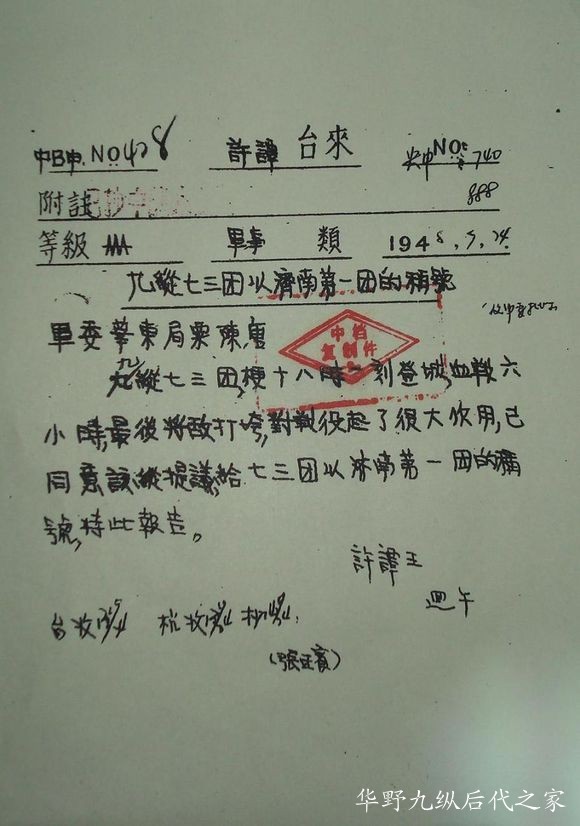 中B申 NO 408 許譚 台來 NO: 740
888
附註
等級 AAA 軍事 類 1948.9.24.
九縱七三团以濟南第一团的稱號
軍委華東局粟陳唐
九縱七三团,梗十八時一刻登城,血戰六
小時,最後將敌打垮,對戰役起了很大作用,已
同意該縱提議,給七三团以济南第一团的稱
號,特此報告。
許譚王
迥午
(張延賓)
中档
复制件
华野九纵后代之家